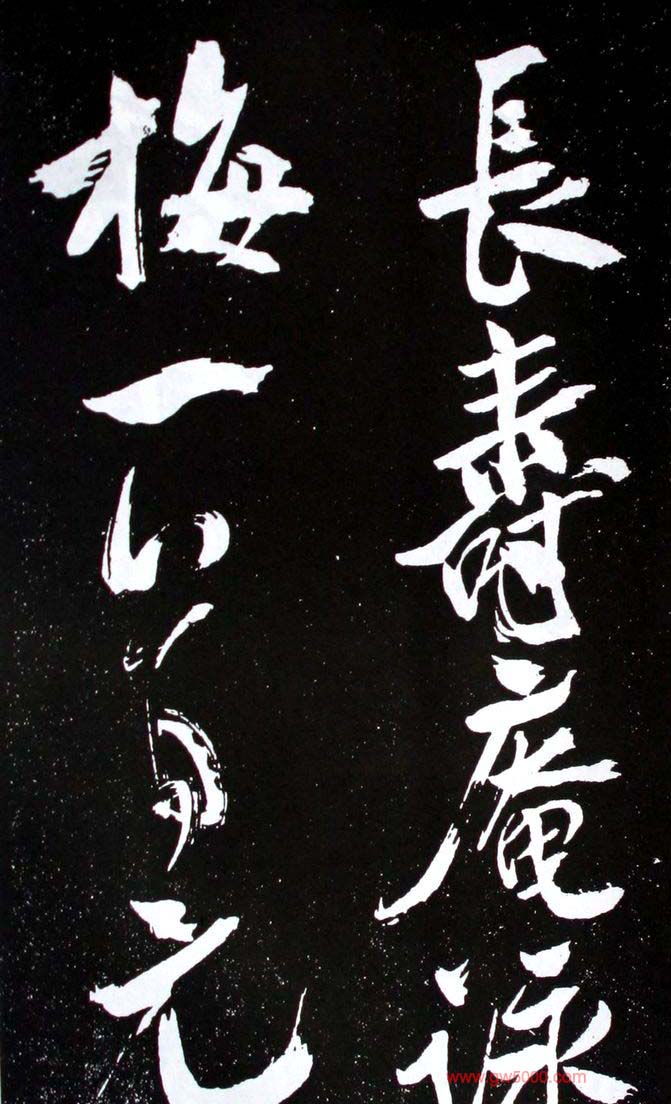 長壽庵詠
梅一元
www.gw5000.com